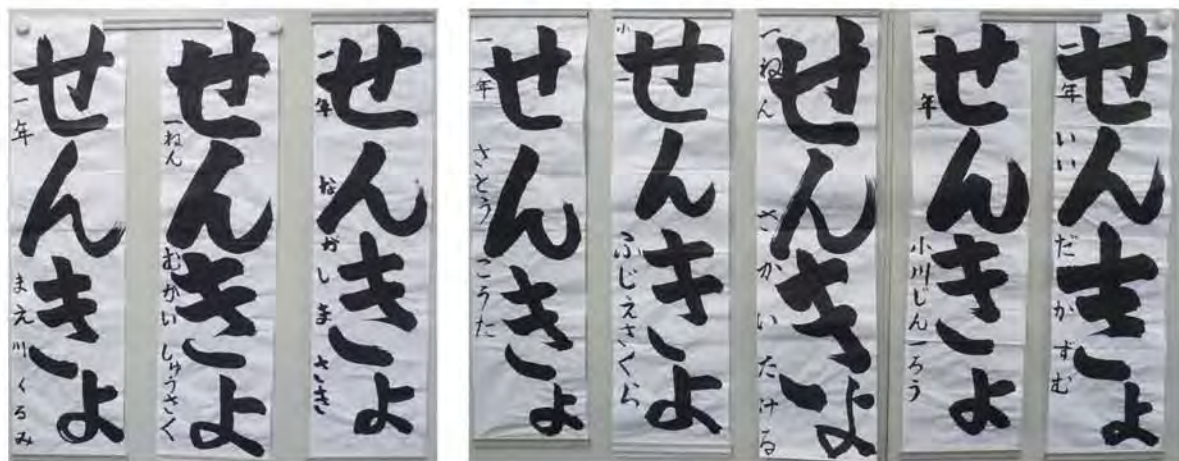 せんきょ
一年 まえ川くるみ
せんきょ
一ねん むかい しゅうさく
せんきょ
一年 ながしま さき
せんきょ
一年 さとう こうた
せんきょ
小一 ふじえさくら
せんきょ
一ねん さかい たける
せんきょ
一年 小川しん一ろう
せんきょ
一年 いいだ かずむ